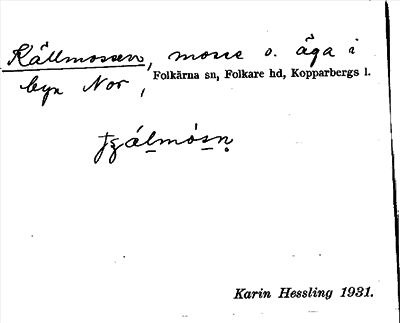 Källmossen, mosse o. äga i
byn Nor, Folkärna sn, Folkare hd, Kopparbergs l.
Karin Hessling 1931.